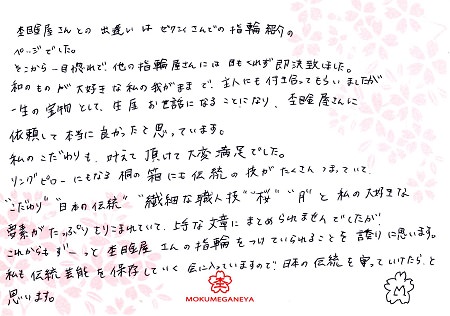 杢目屋さんとの出逢いはゼクシさんでの指輪紹介の
ページでした。
そこから一目惚れで、他の指輪屋さんには目もくれず即決致しました。
和のものが大好きな私の我がままで、主人にも付き合ってもらいましたが
一生の宝物として、生涯お世話になることになり、杢目屋さんに
依頼して本当に良かったと思っています。
私のこだわりも、叶えて頂けて大変満足でした。
リングピローにもなる桐の箱にも伝統の技がたくさんつまっていて、
"こだわり" "日本の伝統" "繊細な職人技" "桜" "月" と私の大好きな
要素がたっぷりとりこまれていて、上手な文章にまとめられませんでしたが
これからもずーっと杢目屋さんの指輪をつけていられることを誇りに思います。
私も伝統芸能を保存していく に入っていますので、日本の伝統を守っていけたら、と
思います。
MOKUMEGANEYA
M